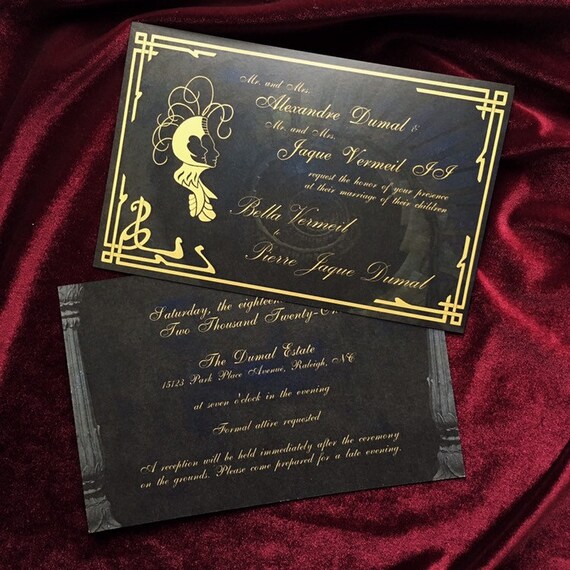 Mr. and Mrs.
Alexandre Dumal &
Mr. and Mrs.
Jaque Vermeil II
request the honor of your presence
at their marriage of their children
Bella Vermeil
&
Pierre Jaque Dumal
P B
Saturday, the eighteen
Two Thousand Twenty-
The Dumal Estate
15123 Park Place Avenue, Raleigh, NC
at seven o'clock in the evening
Formal attire requested
A reception will be held immediately after the ceremony
on the grounds. Please come prepared for a late evening.